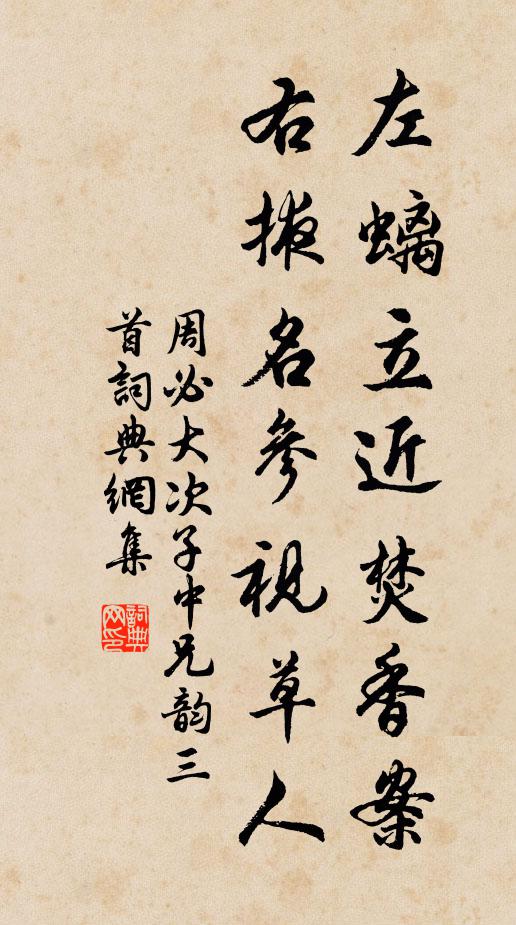 左螭立近焚香案
右掖名參視草人
周必大次子中兄韵三
首詞典網集
詞典网印